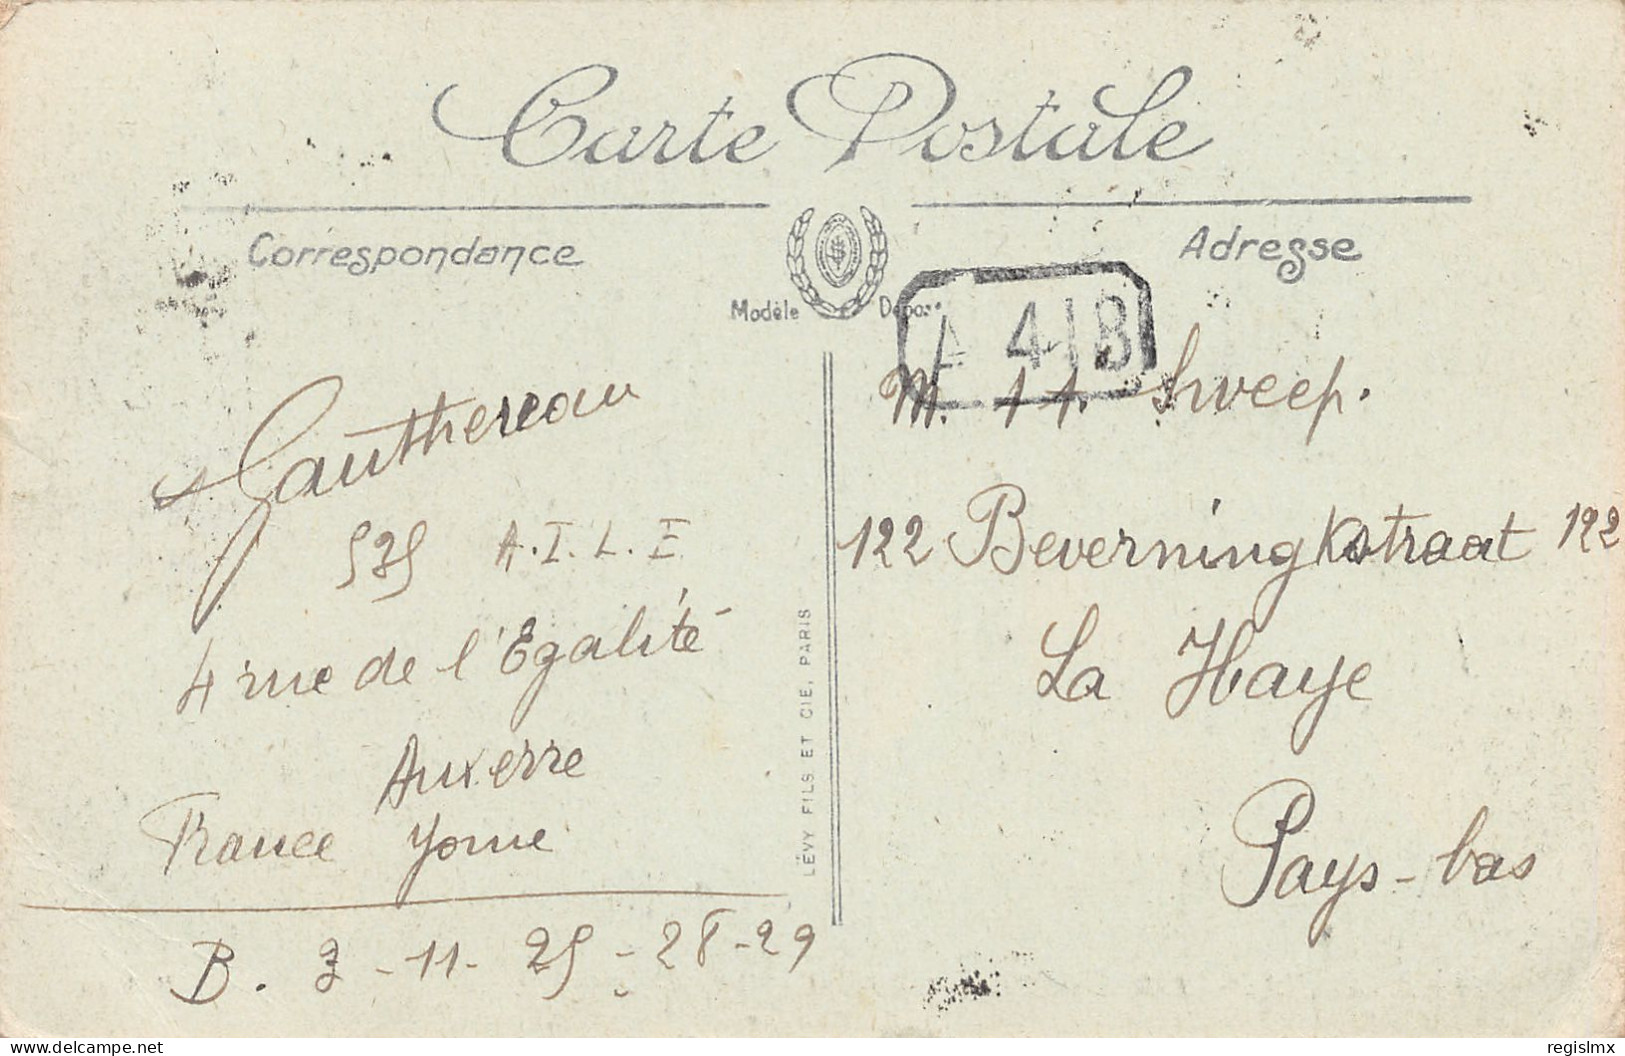 Carte Postale
Correspondance
Adresse
Modèle Déposé
A 41B
Gauthereau
525 A.I.L.E
4 rue de l'Egalité
Auxerre
France Yonne
B. 3-11-25-28-29
LÉVY FILS ET CIE, PARIS
M. Sweep.
122 Beverningkstraat 122
La Haye
Pays-bas
delcampe.net
regislmx